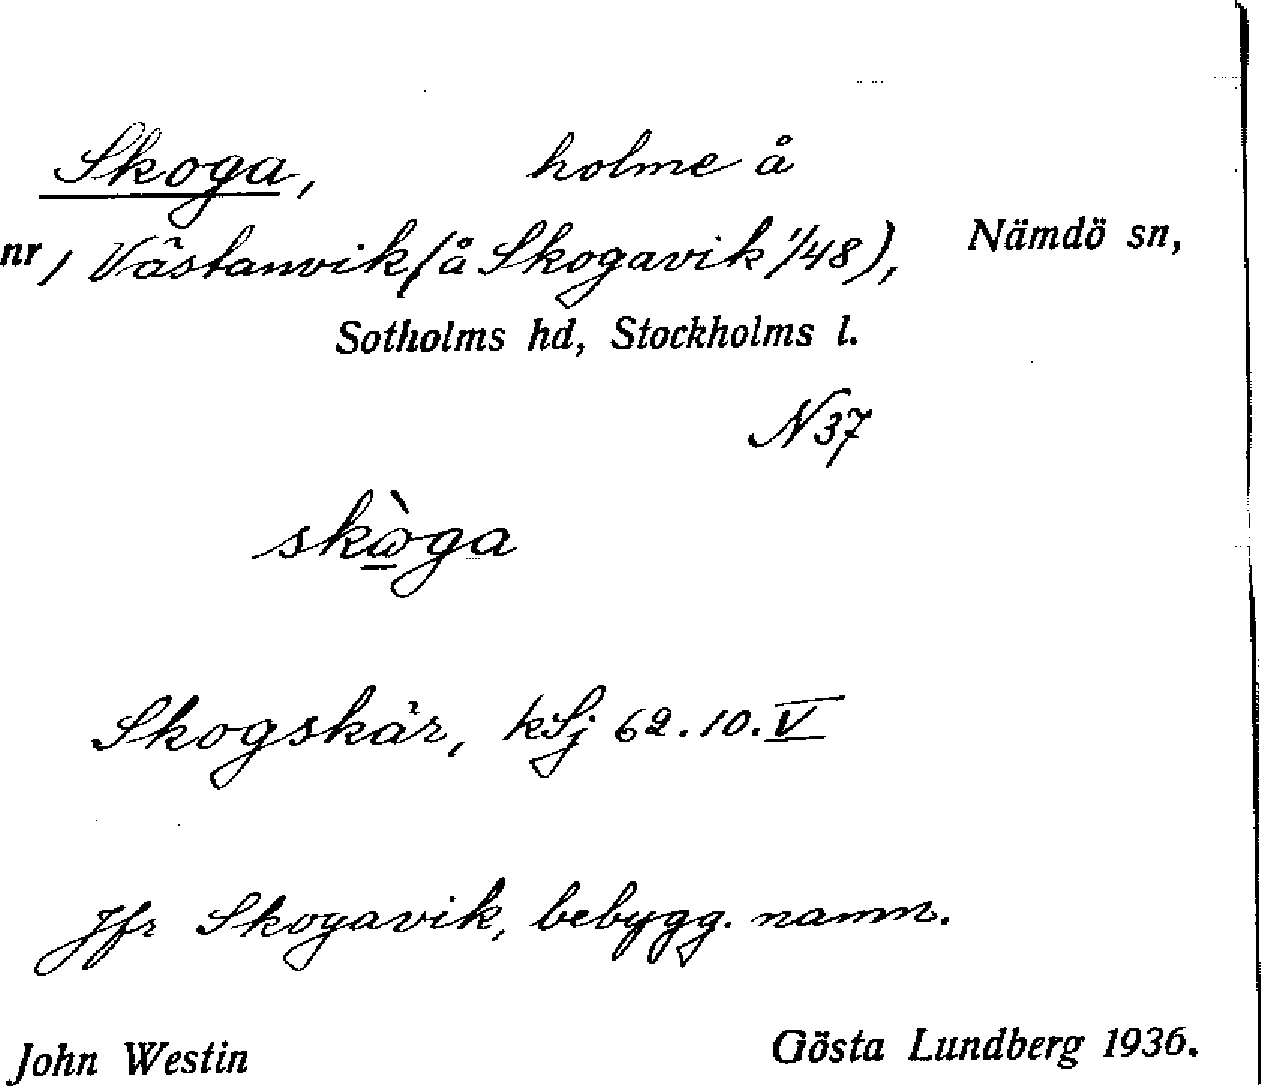 Skoga, holme å
nr 1 Västanvik (å Skogavik 1/48), Nämdö sn,
Sotholms hd, Stockholms l.
N 37
skòga
Skogskär, kSj 62.10.V
Jfr Skogavik, bebygg. namn.
John Westin Gösta Lundberg 1936.